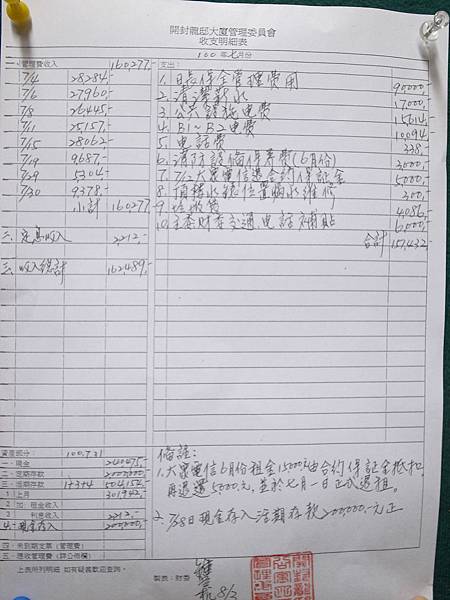 開封龍邸大廈管理委員會
收支明細表
100年七月份
一、管理費收入 160,277.-
支出:
7/4 28284.-
7/6 27960.-
7/8 26445.-
7/11 25157.-
7/15 28062.-
7/19 9687.-
7/29 5304.-
7/30 9378.-
小計 160,277
二、定息收入 2212.-
三、收入總計 162,489.-
1. 日夜保全管理費用 95000.-
2. 清潔薪水 17000.-
3. 公共設施電費 15614.-
4. B1~B2電費 10094.-
5. 電話費 338.-
6. 消防設備保養費(6月份) 3000.-
7. 7/2大眾電信退合約保証金 5000.-
8. 頂樓水錶位置漏水維修 300.-
9. 垃圾費 4086.-
10. 主委財委交通、電話補貼 6,000.-
合計 157,432.-
資產部分: 100.7.31
一、現金 240475.-
二、定期存款 2000,000.-
三、活期存款 1+3+4 504,154.-
1 上月 301,942.-
2 加:租金收入
3 利息收入 2212.-
4. 現金存入 200,000.-
四、未到期支票(管理費)
五、應收管理費(詳公佈欄)
上表所列明細 如有疑義歡迎查詢。
製表:財委
8/3
備註:
1. 大眾電信6月份租金15000元由合約保証金抵扣,
再退還5,000元,並於七月一日正式退租。
2. 7/28日現金存入活期存款200,000元正